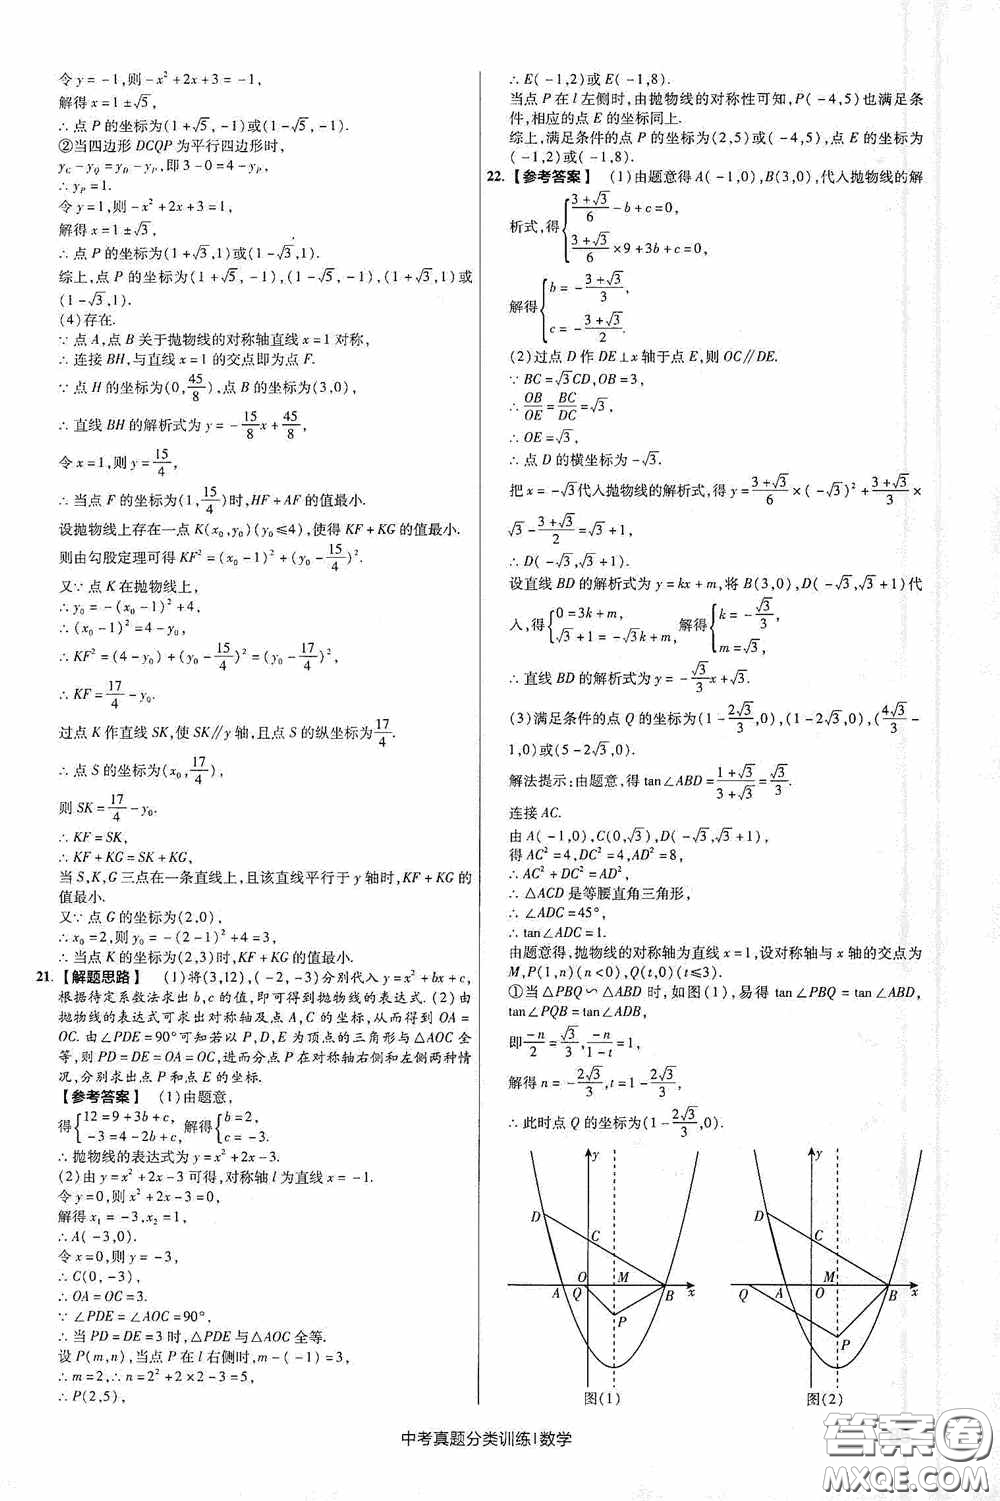 令y=-1,则-x²+2x+3=-1,
解得x=1±√5,
∴点P的坐标为(1+√5,-1)或(1-√5,-1).
②当四边形DCQP为平行四边形时,
y_C-y_Q=y_D-y_P,即3-0=4-y_P,
∴y_P=1.
令y=1,则-x²+2x+3=1,
解得x=1±√3,
∴点P的坐标为(1+√3,1)或(1-√3,1).
综上,点P的坐标为(1+√5,-1),(1-√5,-1),(1+√3,1)或
(1-√3,1).
(4)存在.
∵点A,点B关于抛物线的对称轴直线x=1对称,
∴连接BH,与直线x=1的交点即为点F.
∵点H的坐标为(0,45/8),点B的坐标为(3,0),
∴直线BH的解析式为y=-15/8x+45/8,
令x=1,则y=15/4,
∴当点F的坐标为(1,15/4)时,HF+AF的值最小.
设抛物线上存在一点K(x₀,y₀)(y₀≤4),使得KF+KG的值最小.
则由勾股定理可得KF²=(x₀-1)²+(y₀-15/4)².
又∵点K在抛物线上,
∴y₀=-(x₀-1)²+4,
∴(x₀-1)²=4-y₀,
∴KF²=(4-y₀)+(y₀-15/4)²=(y₀-17/4)²,
∴KF=17/4-y₀.
过点K作直线SK,使SK∥y轴,且点S的纵坐标为17/4.
∴点S的坐标为(x₀,17/4),
则SK=17/4-y₀,
∴KF=SK,
∴KF+KG=SK+KG,
当S,K,G三点在一条直线上,且该直线平行于y轴时,KF+KG的
值最小.
又∵点G的坐标为(2,0),
∴x₀=2,则y₀=-(2-1)²+4=3,
∴当点K的坐标为(2,3)时,KF+KG的值最小.
21.【解题思路】 (1)将(3,12),(-2,-3)分别代入y=x²+bx+c,
根据待定系数法求出b,c的值,即可得到抛物线的表达式.(2)由
抛物线的表达式可求出对称轴及点A,C的坐标,从而得到OA=
OC.由∠PDE=90°可知若以P,D,E为顶点的三角形与△AOC全
等,则PD=DE=OA=OC,进而分点P在对称轴右侧和左侧两种情
况,分别求出点P和点E的坐标.
【参考答案】 (1)由题意,
得{12=9+3b+c, -3=4-2b+c, 解得{b=2, c=-3.
∴抛物线的表达式为y=x²+2x-3.
(2)由y=x²+2x-3可得,对称轴l为直线x=-1.
令y=0,则x²+2x-3=0,
解得x₁=-3,x₂=1,
∴A(-3,0).
令x=0,则y=-3,
∴C(0,-3),
∴OA=OC=3.
∵∠PDE=∠AOC=90°,
∴当PD=DE=3时,△PDE与△AOC全等.
设P(m,n),当点P在l右侧时,m-(-1)=3,
∴m=2,∴n=2²+2×2-3=5,
∴P(2,5),
∴E(-1,2)或E(-1,8).
当点P在l左侧时,由抛物线的对称性可知,P(-4,5)也满足条
件,相应的点E的坐标同上.
综上,满足条件的点P的坐标为(2,5)或(-4,5),点E的坐标为
(-1,2)或(-1,8).
22.【参考答案】 (1)由题意得A(-1,0),B(3,0),代入抛物线的解
析式,得{(3+√3)/6-b+c=0, (3+√3)/6×9+3b+c=0,
解得{b=-(3+√3)/3, c=-(3+√3)/2.
(2)过点D作DE⊥x轴于点E,则OC∥DE.
∵BC=√3CD,OB=3,
∴OB/OE=BC/DC=√3,
∴OE=√3,
∴点D的横坐标为-√3.
把x=-√3代入抛物线的解析式,得y=(3+√3)/6×(-√3)²+(3+√3)/3×
√3-(3+√3)/2=√3+1,
∴D(-√3,√3+1).
设直线BD的解析式为y=kx+m,将B(3,0),D(-√3,√3+1)代
入,得{0=3k+m, √3+1=-√3k+m, 解得{k=-√3/3, m=√3,
∴直线BD的解析式为y=-√3/3x+√3.
(3)满足条件的点Q的坐标为(1-2√3/3,0),(1-2√3,0),(4√3/3-
1,0)或(5-2√3,0).
解法提示:由题意,得tan∠ABD=(1+√3)/(3+√3)=√3/3.
连接AC.
由A(-1,0),C(0,√3),D(-√3,√3+1),
得AC²=4,DC²=4,AD²=8,
∴AC²+DC²=AD²,
∴△ACD是等腰直角三角形,
∴∠ADC=45°,
∴tan∠ADC=1.
由题意得,抛物线的对称轴为直线x=1,设对称轴与x轴的交点为
M,P(1,n)(n<0),Q(t,0)(t≤3).
①当△PBQ∽△ABD时,如图(1),易得tan∠PBQ=tan∠ABD,
tan∠PQB=tan∠ADB,
即-n/2=√3/3,-n/(1-t)=1,
解得n=-2√3/3,t=1-2√3/3,
∴此时点Q的坐标为(1-2√3/3,0).
y
D
C
O
M
A
Q
B
x
P
图(1)
y
D
C
M
Q
A
O
B
x
P
图(2)
中考真题分类训练|数学
答案圈
MXQE.COM